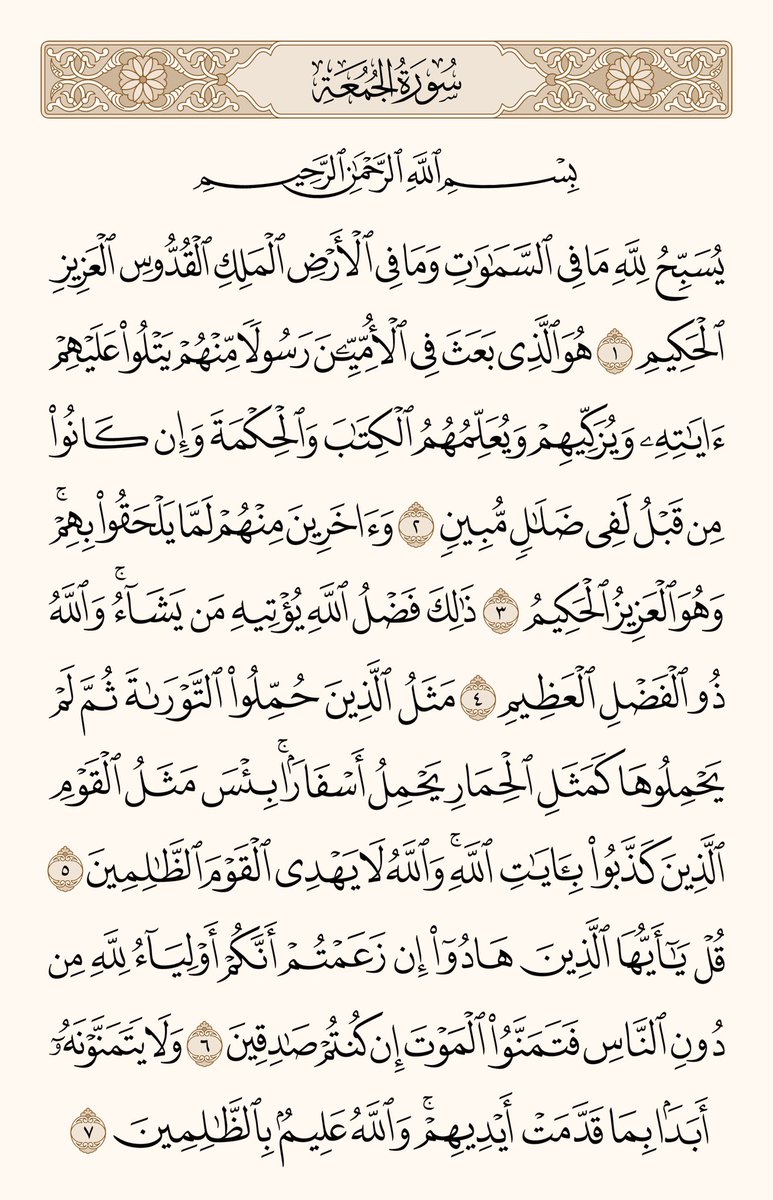 سُورَةُ الجُمُعَةِ
بِسْمِ ٱللَّهِ ٱلرَّحْمَٰنِ ٱلرَّحِيمِ
يُسَبِّحُ لِلَّهِ مَا فِى ٱلسَّمَٰوَٰتِ وَمَا فِى ٱلْأَرْضِ ٱلْمَلِكِ ٱلْقُدُّوسِ ٱلْعَزِيزِ
ٱلْحَكِيمِ ١ هُوَ ٱلَّذِى بَعَثَ فِى ٱلْأُمِّيِّـۧنَ رَسُولًا مِّنْهُمْ يَتْلُوا۟ عَلَيْهِمْ
ءَايَٰتِهِۦ وَيُزَكِّيهِمْ وَيُعَلِّمُهُمُ ٱلْكِتَٰبَ وَٱلْحِكْمَةَ وَإِن كَانُوا۟
مِن قَبْلُ لَفِى ضَلَٰلٍ مُّبِينٍ ٢ وَءَاخَرِينَ مِنْهُمْ لَمَّا يَلْحَقُوا۟ بِهِمْ ۚ
وَهُوَ ٱلْعَزِيزُ ٱلْحَكِيمُ ٣ ذَٰلِكَ فَضْلُ ٱللَّهِ يُؤْتِيهِ مَن يَشَآءُ ۚ وَٱللَّهُ
ذُو ٱلْفَضْلِ ٱلْعَظِيمِ ٤ مَثَلُ ٱلَّذِينَ حُمِّلُوا۟ ٱلتَّوْرَىٰةَ ثُمَّ لَمْ
يَحْمِلُوهَا كَمَثَلِ ٱلْحِمَارِ يَحْمِلُ أَسْفَارًۢا ۚ بِئْسَ مَثَلُ ٱلْقَوْمِ
ٱلَّذِينَ كَذَّبُوا۟ بِـَٔايَٰتِ ٱللَّهِ ۚ وَٱللَّهُ لَا يَهْدِى ٱلْقَوْمَ ٱلظَّٰلِمِينَ ٥
قُلْ يَٰٓأَيُّهَا ٱلَّذِينَ هَادُوٓا۟ إِن زَعَمْتُمْ أَنَّكُمْ أَوْلِيَآءُ لِلَّهِ مِن
دُونِ ٱلنَّاسِ فَتَمَنَّوُا۟ ٱلْمَوْتَ إِن كُنتُمْ صَٰدِقِينَ ٦ وَلَا يَتَمَنَّوْنَهُۥٓ
أَبَدًۢا بِمَا قَدَّمَتْ أَيْدِيهِمْ ۚ وَٱللَّهُ عَلِيمٌۢ بِٱلظَّٰلِمِينَ ٧